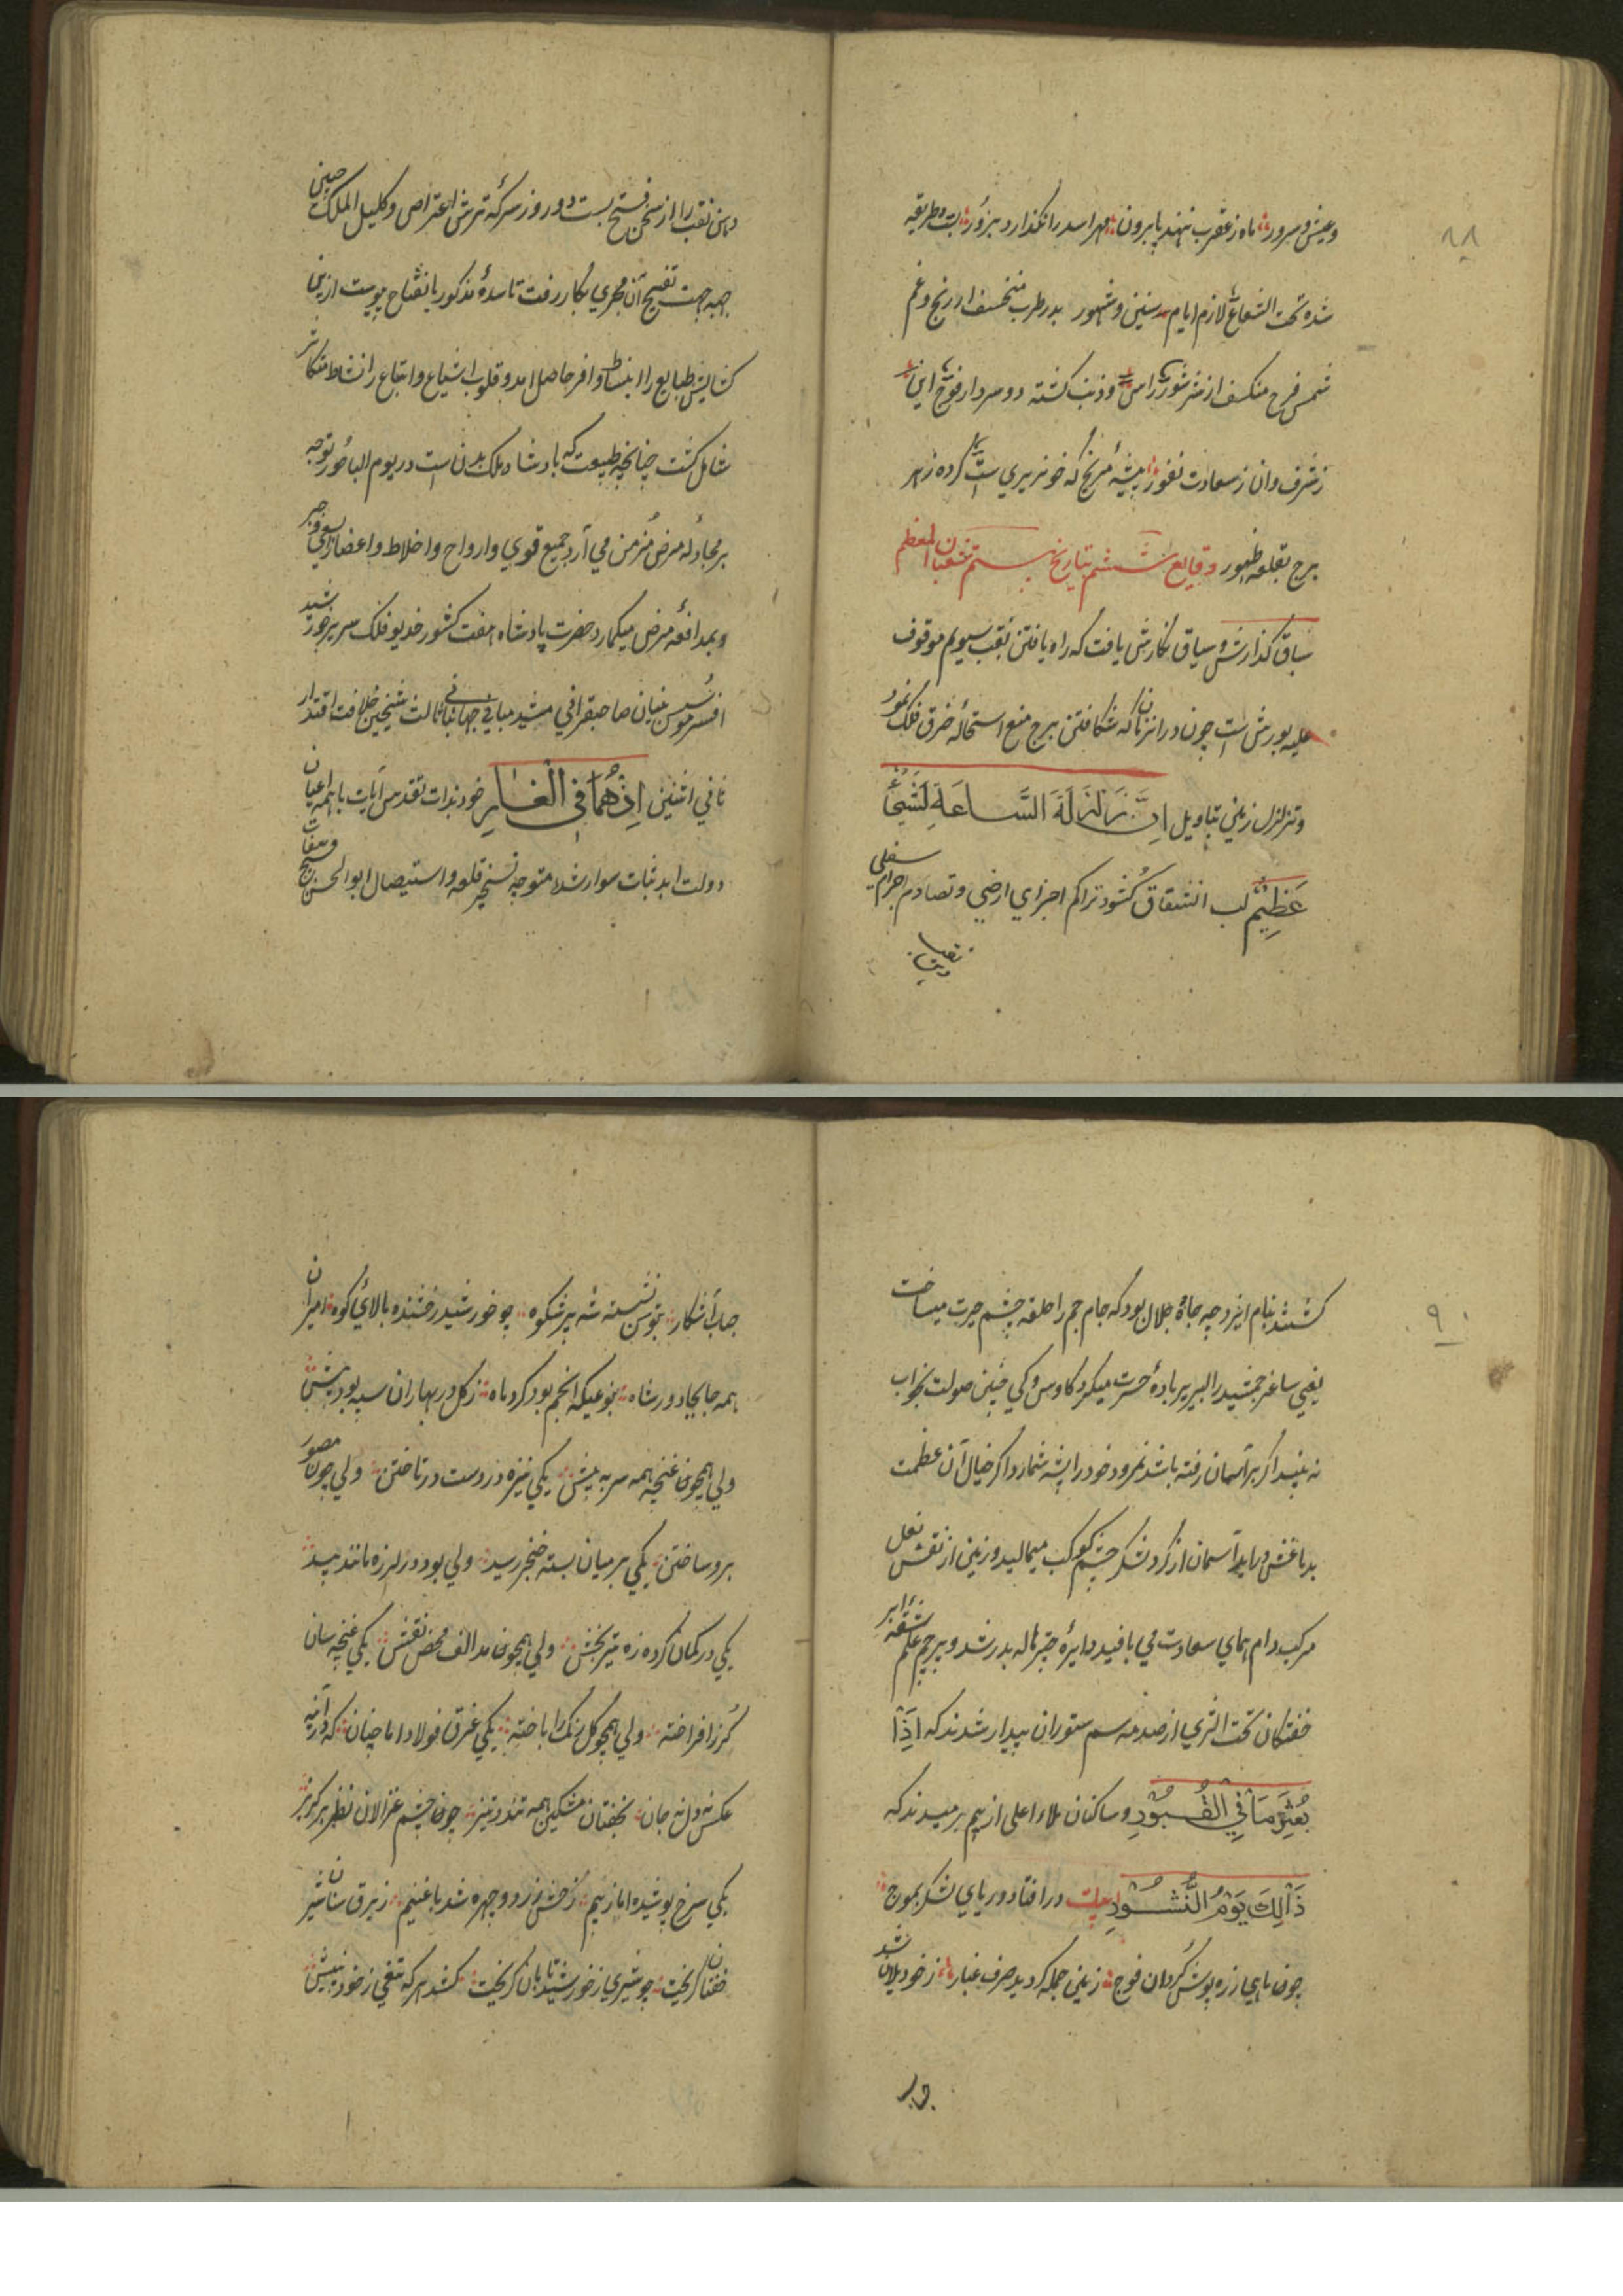 ۸۸
وعیش و سرور ماه ز عقرب ننهد پا برون مهر اسد را نگذارد بزور ثابت و طریقه
شده تحت الشعاع لازم ایام سنین و شهور بدر طرب منخسف از رنج و غم
شمس فرح منکسف از شر شور راس و ذنب کشته دو سردار فوج این
ز شرف وان ز سعادت نفور پیشهٔ مریخ که خونریزی است کرده ز هر
برج بقلعه ظهور وقایع ششم بتاریخ بیستم شعبان المعظم
سباق گذارش و سیاق نگارش یافت که راه یافتن بنقب سیوم موقوف
علیه یورش است چون درانزمان که شکافتن برج منع استحالهٔ خرق فلک نمود
و تزلزل زمین بتاویل اِنَّ زَلْزَلَةَ السَّاعَةِ لَشَیْءٌ
عَظِیْمٌ لب انشقاق گشود تراکم اجزای ارضی و تصادم اجرام سفلی
دهن نقب را از سخن فتح بست دو روز سرکهٔ ترش اعتراض و کلیل الملک
جهت تفتیح آن مجری بکار رفت تا سدهٔ مذکور بانفتاح پیوست ازین
کشایش طبایع را انبساط وافر حاصل امد و قلوب اشیاع و اتباع را نشاط متکاثر
شامل گشت چنانچه طبیعت که پادشاه ملک بدن است در یوم الباحور توجه
بر مجادلهٔ مرض مزمن می آرد جمیع قوی و ارواح و اخلاط و اعضا را
و بمدافعهٔ مرض میگمارد حضرت پادشاه هفت کشور خدیو فلک سریر خورشید
افسر موسس بنیان صاحبقرانی مشید مبانی جهانبانی ثالث شیخین خلافت اقتدار
ثانی اثنین اِذْ هُمَا فِی الْغَارِ خود بذات تقدس آیات باهمه اعیان
دولت ابد ثبات سوار شده متوجه تسخیر قلعه و استیصال ابوالحسن
۹۰
گشتند بنام ایزد چه جاه و جلال بود که جام جم را حلقه چشم حیرت میساخت
یعنی ساغر جمشید را لبریز بادهٔ حسرت میکرد کاوس و کی چنین صولت بخواب
نه بیند اگر بر آسمان رفته باشد نمرود خود را پشه شمارد اگر خیال آن عظمت
بدماغش درآید آسمان از گرد لشکر چشم کوکب میمالید و زمین از نقش نعل
مرکب دام همای سعادت می بافید دایرهٔ چتر هاله بدر شد و پرچم علم
خفتگان تحت الثری از صدمه سم ستوران بیدار شدند که اِذَا
بُعْثِرَ مَا فِی الْقُبُوْرِ و ساکنان ملاء اعلی از بیم برمیدند که
ذَالِكَ یَوْمُ النُّشُوْرِ ابیات در افتاد دریای لشکر بموج
چو ماهی زره پوش گردان فوج زمین جمله گردید صرف غبار ز خود یلان شد
حباب آشکار بتوسن نشسته شه پرشکوه چو خورشید رخشنده بالای کوه امیران
همه جابجا دور شاه بنوعیکه انجم بود گرد ماه ز گل در بهاران سپه بود بیش
ولی همچون غنچه همه سر به پیش یکی نیزه در دست در تاختن ولی چون مصور
برو ساختن یکی بر میان بسته خنجر رسید ولی بود در لرزه مانند بید
یکی در کمان کرده زه تیر بخش ولی همچون مد الف محض نقش یکی غنچه سان
گرز افراخته ولی همچو گل رنگ را باخته یکی غرق فولاد اما چنان که در آینه
عکس نه دل نه جان بخفتان مشکین همه تند و تیز چون چشم غزالان نظر بر گریز
یکی سرخ پوشیده اما ز بیم رخش زرد و چهره شد با غنیم ز برق سنان شیر
خفتان گریخت چو شیری ز خورشید تابان گریخت کشد هر که تیغی ز خود بینیش